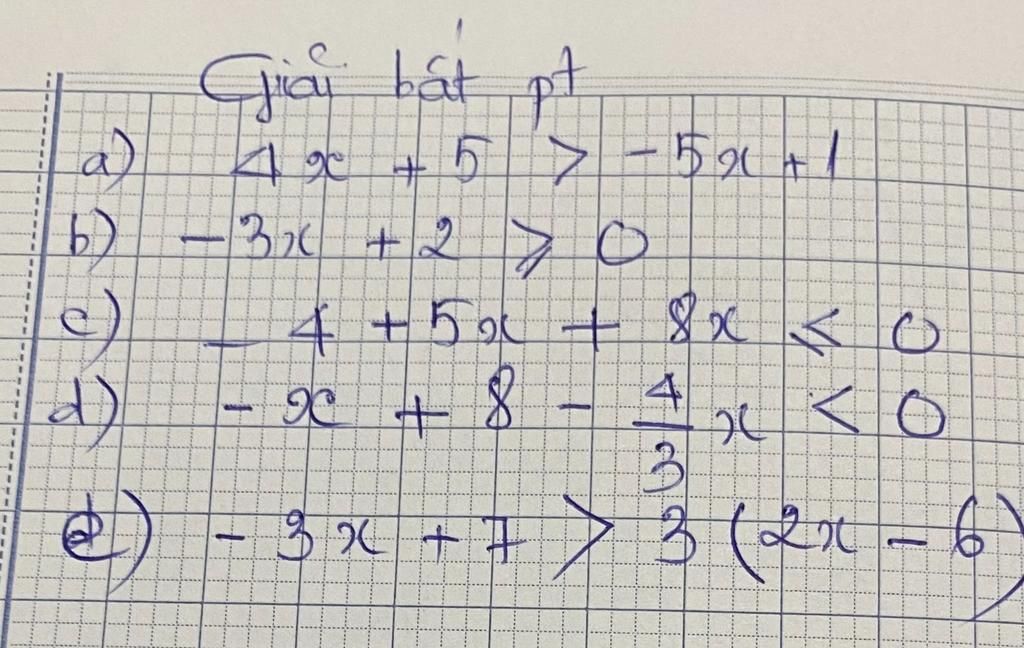 Giải bất pt
a) 4x + 5 > -5x + 1
b) -3x + 2 ⩾ 0
c) -4 + 5x + 8x ⩽ 0
d) -x + 8 - 4/3 x < 0
e) -3x + 7 > 3(2x - 6)